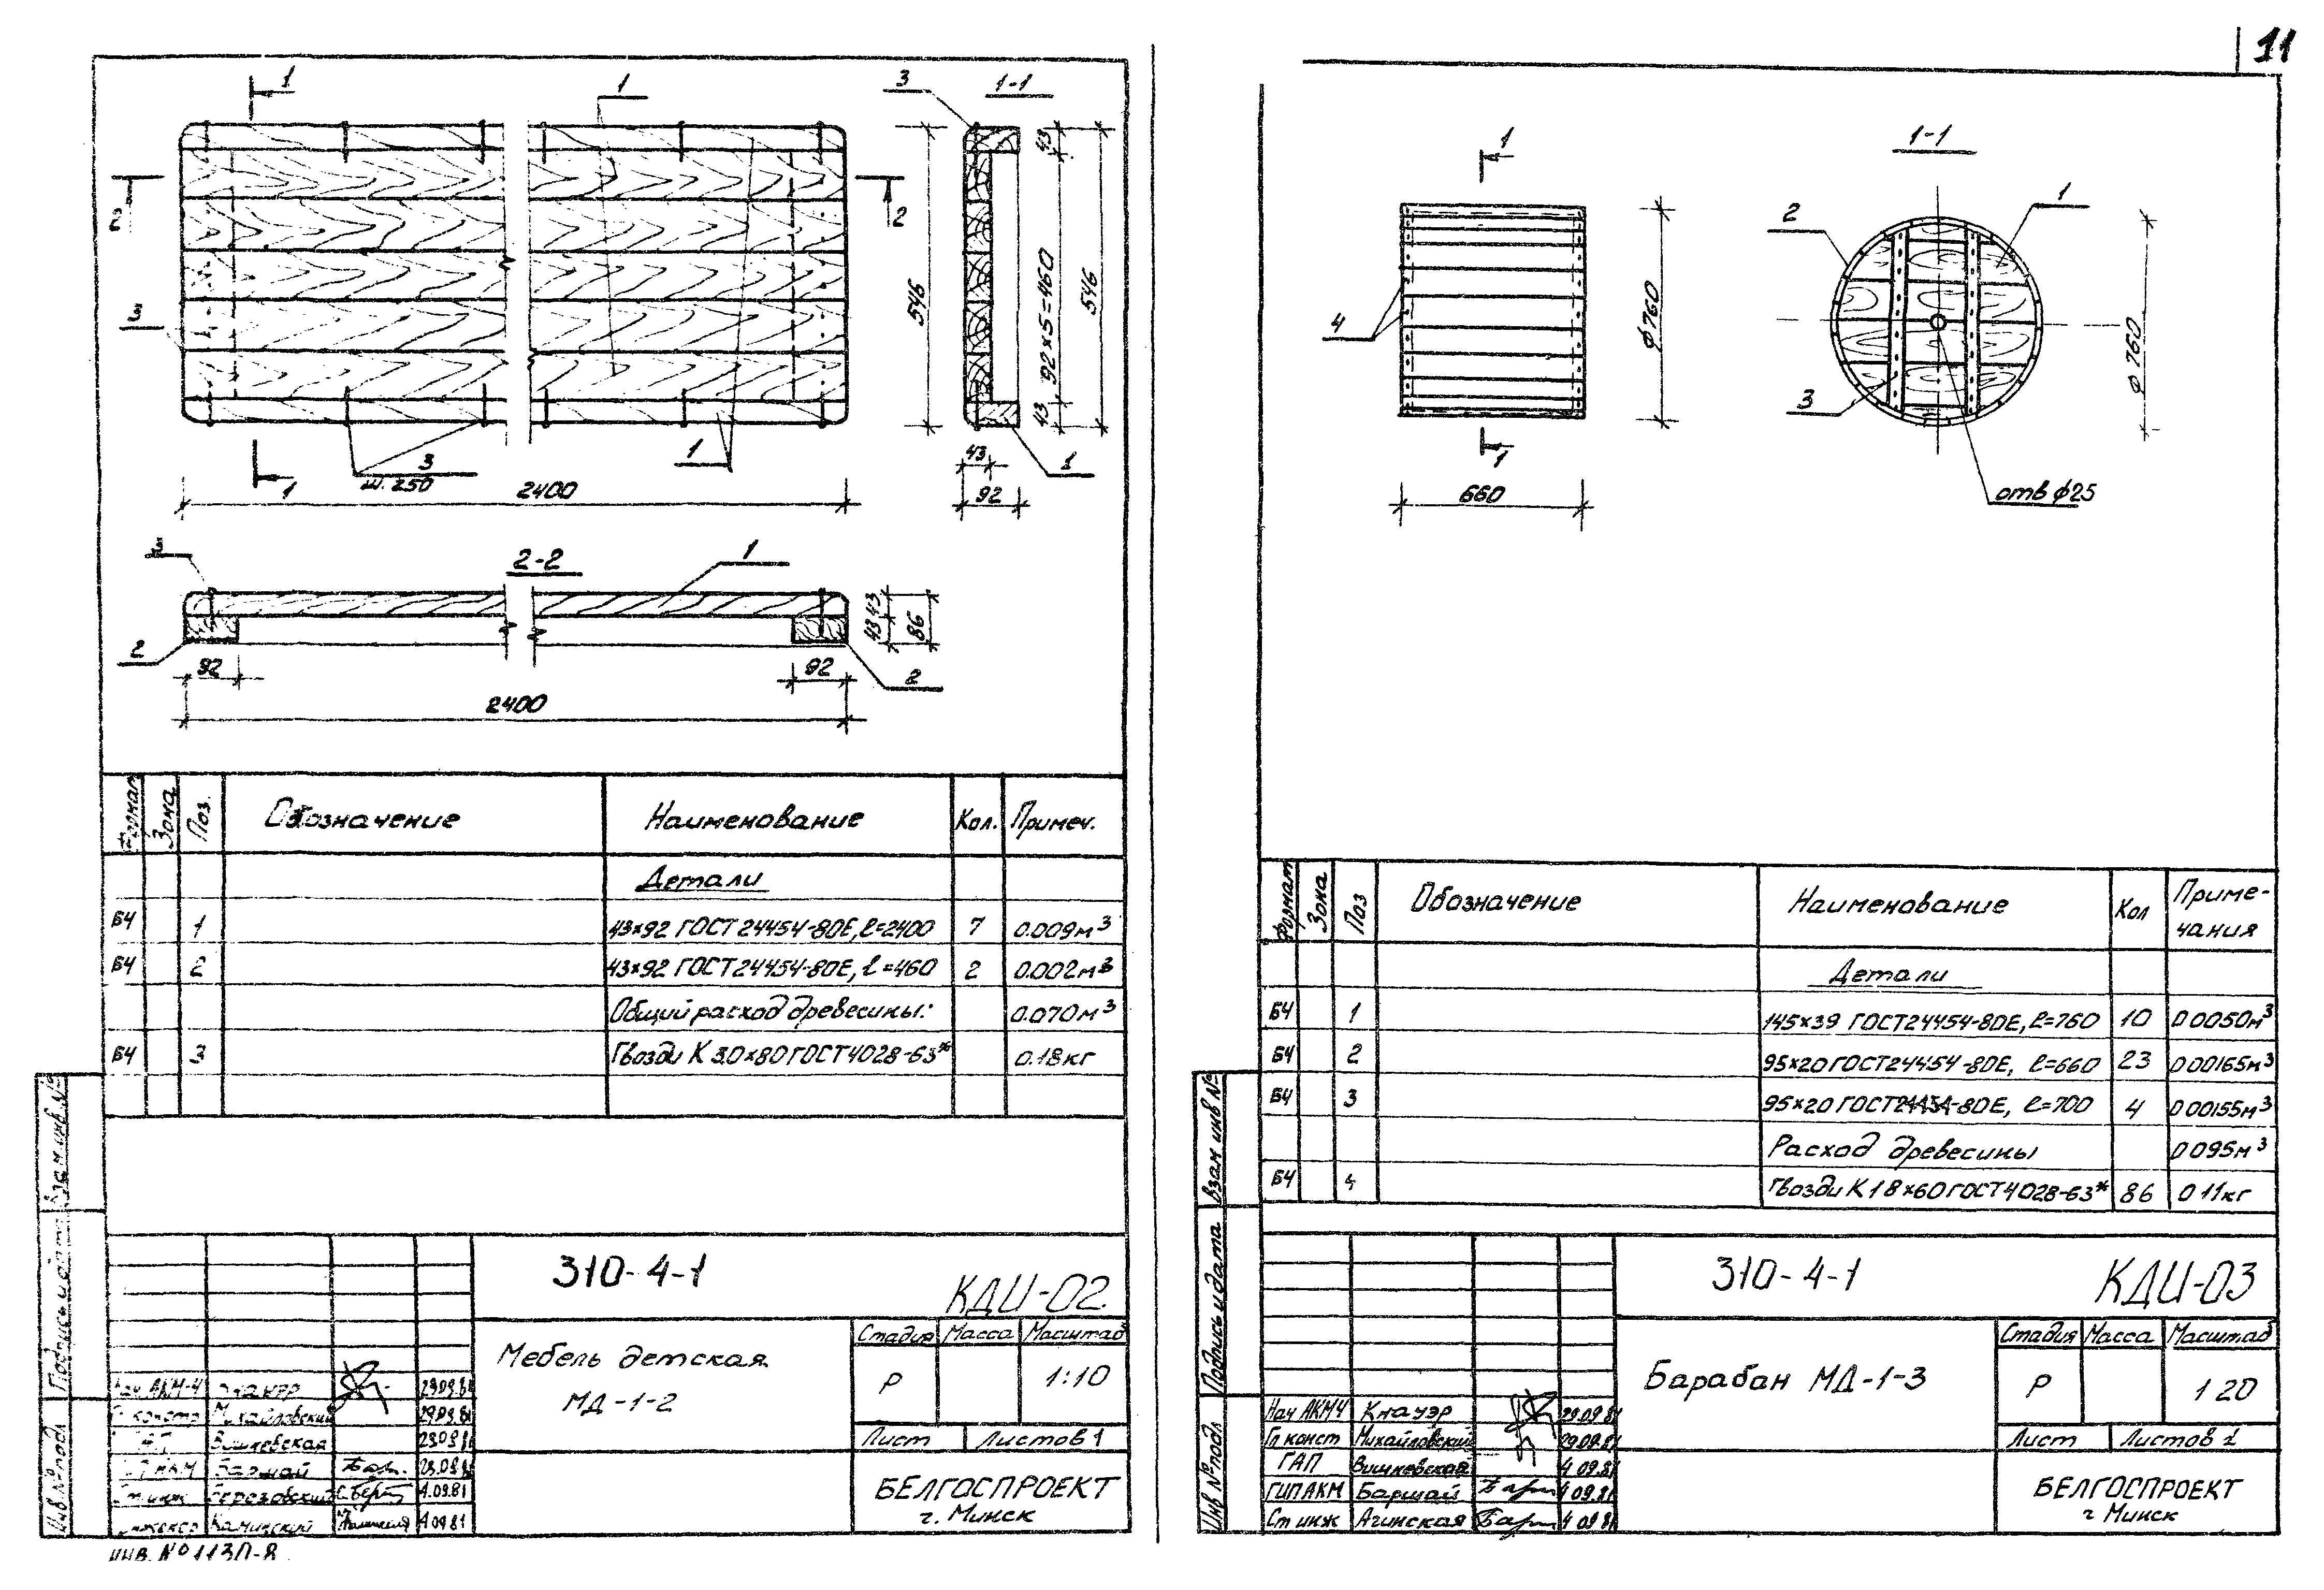 11
1
1
3
1-1
2
2
3
546
43
92×5=460
43
546
3
ш. 250
1
1
2400
43
92
1
3
2-2
1
43
43
86
2
92
92
2
2400
Формат
Зона
Поз.
Обозначение
Наименование
Кол.
Примеч.
Детали
БЧ 1 43×92 ГОСТ 24454-80Е, ℓ=2400 7 0.009м³
БЧ 2 43×92 ГОСТ 24454-80Е, ℓ=460 2 0.002м³
Общий расход древесины: 0.070м³
БЧ 3 Гвозди К 3.0×80 ГОСТ 4028-63* 0.18кг
Взам.инв.№
Подпись и дата
Инв.№подл
310-4-1
КДИ-02.
Мебель детская
МД-1-2
Стадия Масса Масштаб
Р 1:10
Лист Листов 1
БЕЛГОСПРОЕКТ
г. Минск
Нач. АКМ-4 Кнауэр 29.09.81
Гл. констр Михайловский 29.09.81
ГАП Вишневская
Баршай
Ст инж Березовский 09.81
Инженер Каминский 09.81
инв. №
1
1-1
2
1
4
ф760
ф760
3
1
660
отв ф25
Формат
Зона
Поз
Обозначение
Наименование
Кол
Приме-
чания
Детали
БЧ 1 145×39 ГОСТ 24454-80Е, ℓ=760 10 0 0050м³
БЧ 2 95×20 ГОСТ 24454-80Е, ℓ=660 23 0 00165м³
БЧ 3 95×20 ГОСТ 24454-80Е, ℓ=700 4 0 00155м³
Расход древесины 0 095м³
БЧ 4 Гвозди К 1 8×60 ГОСТ 4028-63* 86 0 11кг
Взам инв №
Подпись и дата
Инв №подл
310-4-1
КДИ-03
Барабан МД-1-3
Стадия Масса Масштаб
Р 1 20
Лист Листов 1
БЕЛГОСПРОЕКТ
г Минск
Нач АКМ4 Кнауэр 29.09.81
Гл конст Михайловский 29.09.81
ГАП Вишневская 4 09.81
ГИПАКМ Баршай 4 09.81
Ст инж Агинская 4 09.81